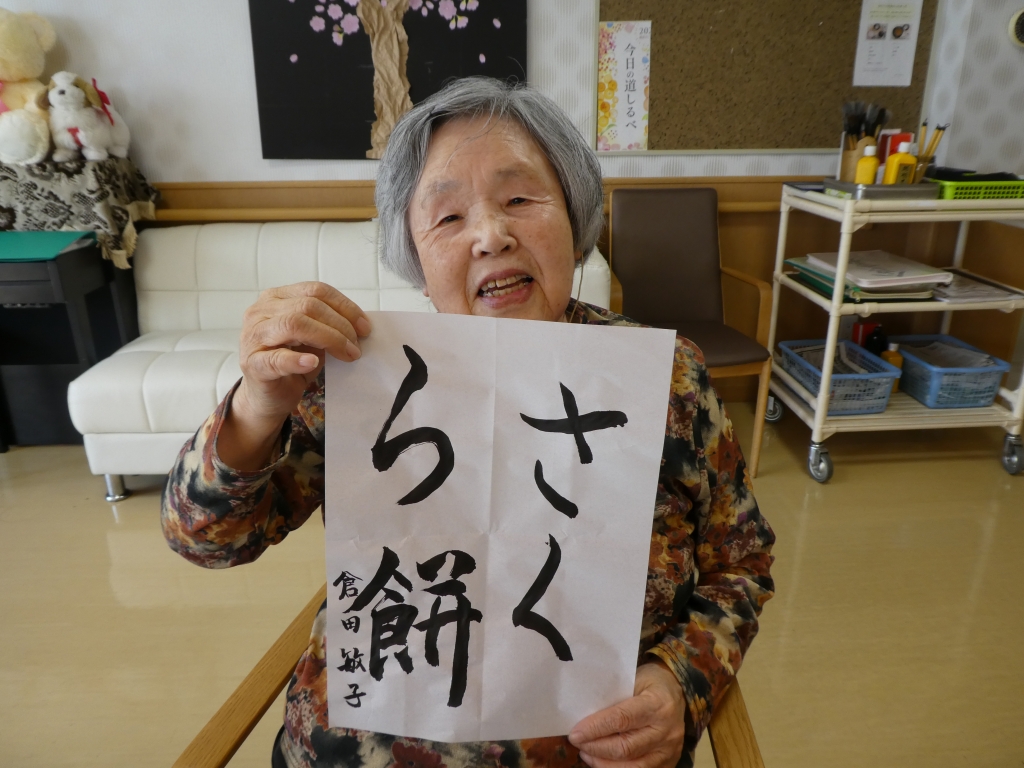 さく
ら餅
倉田敏子
今日の道しるべ